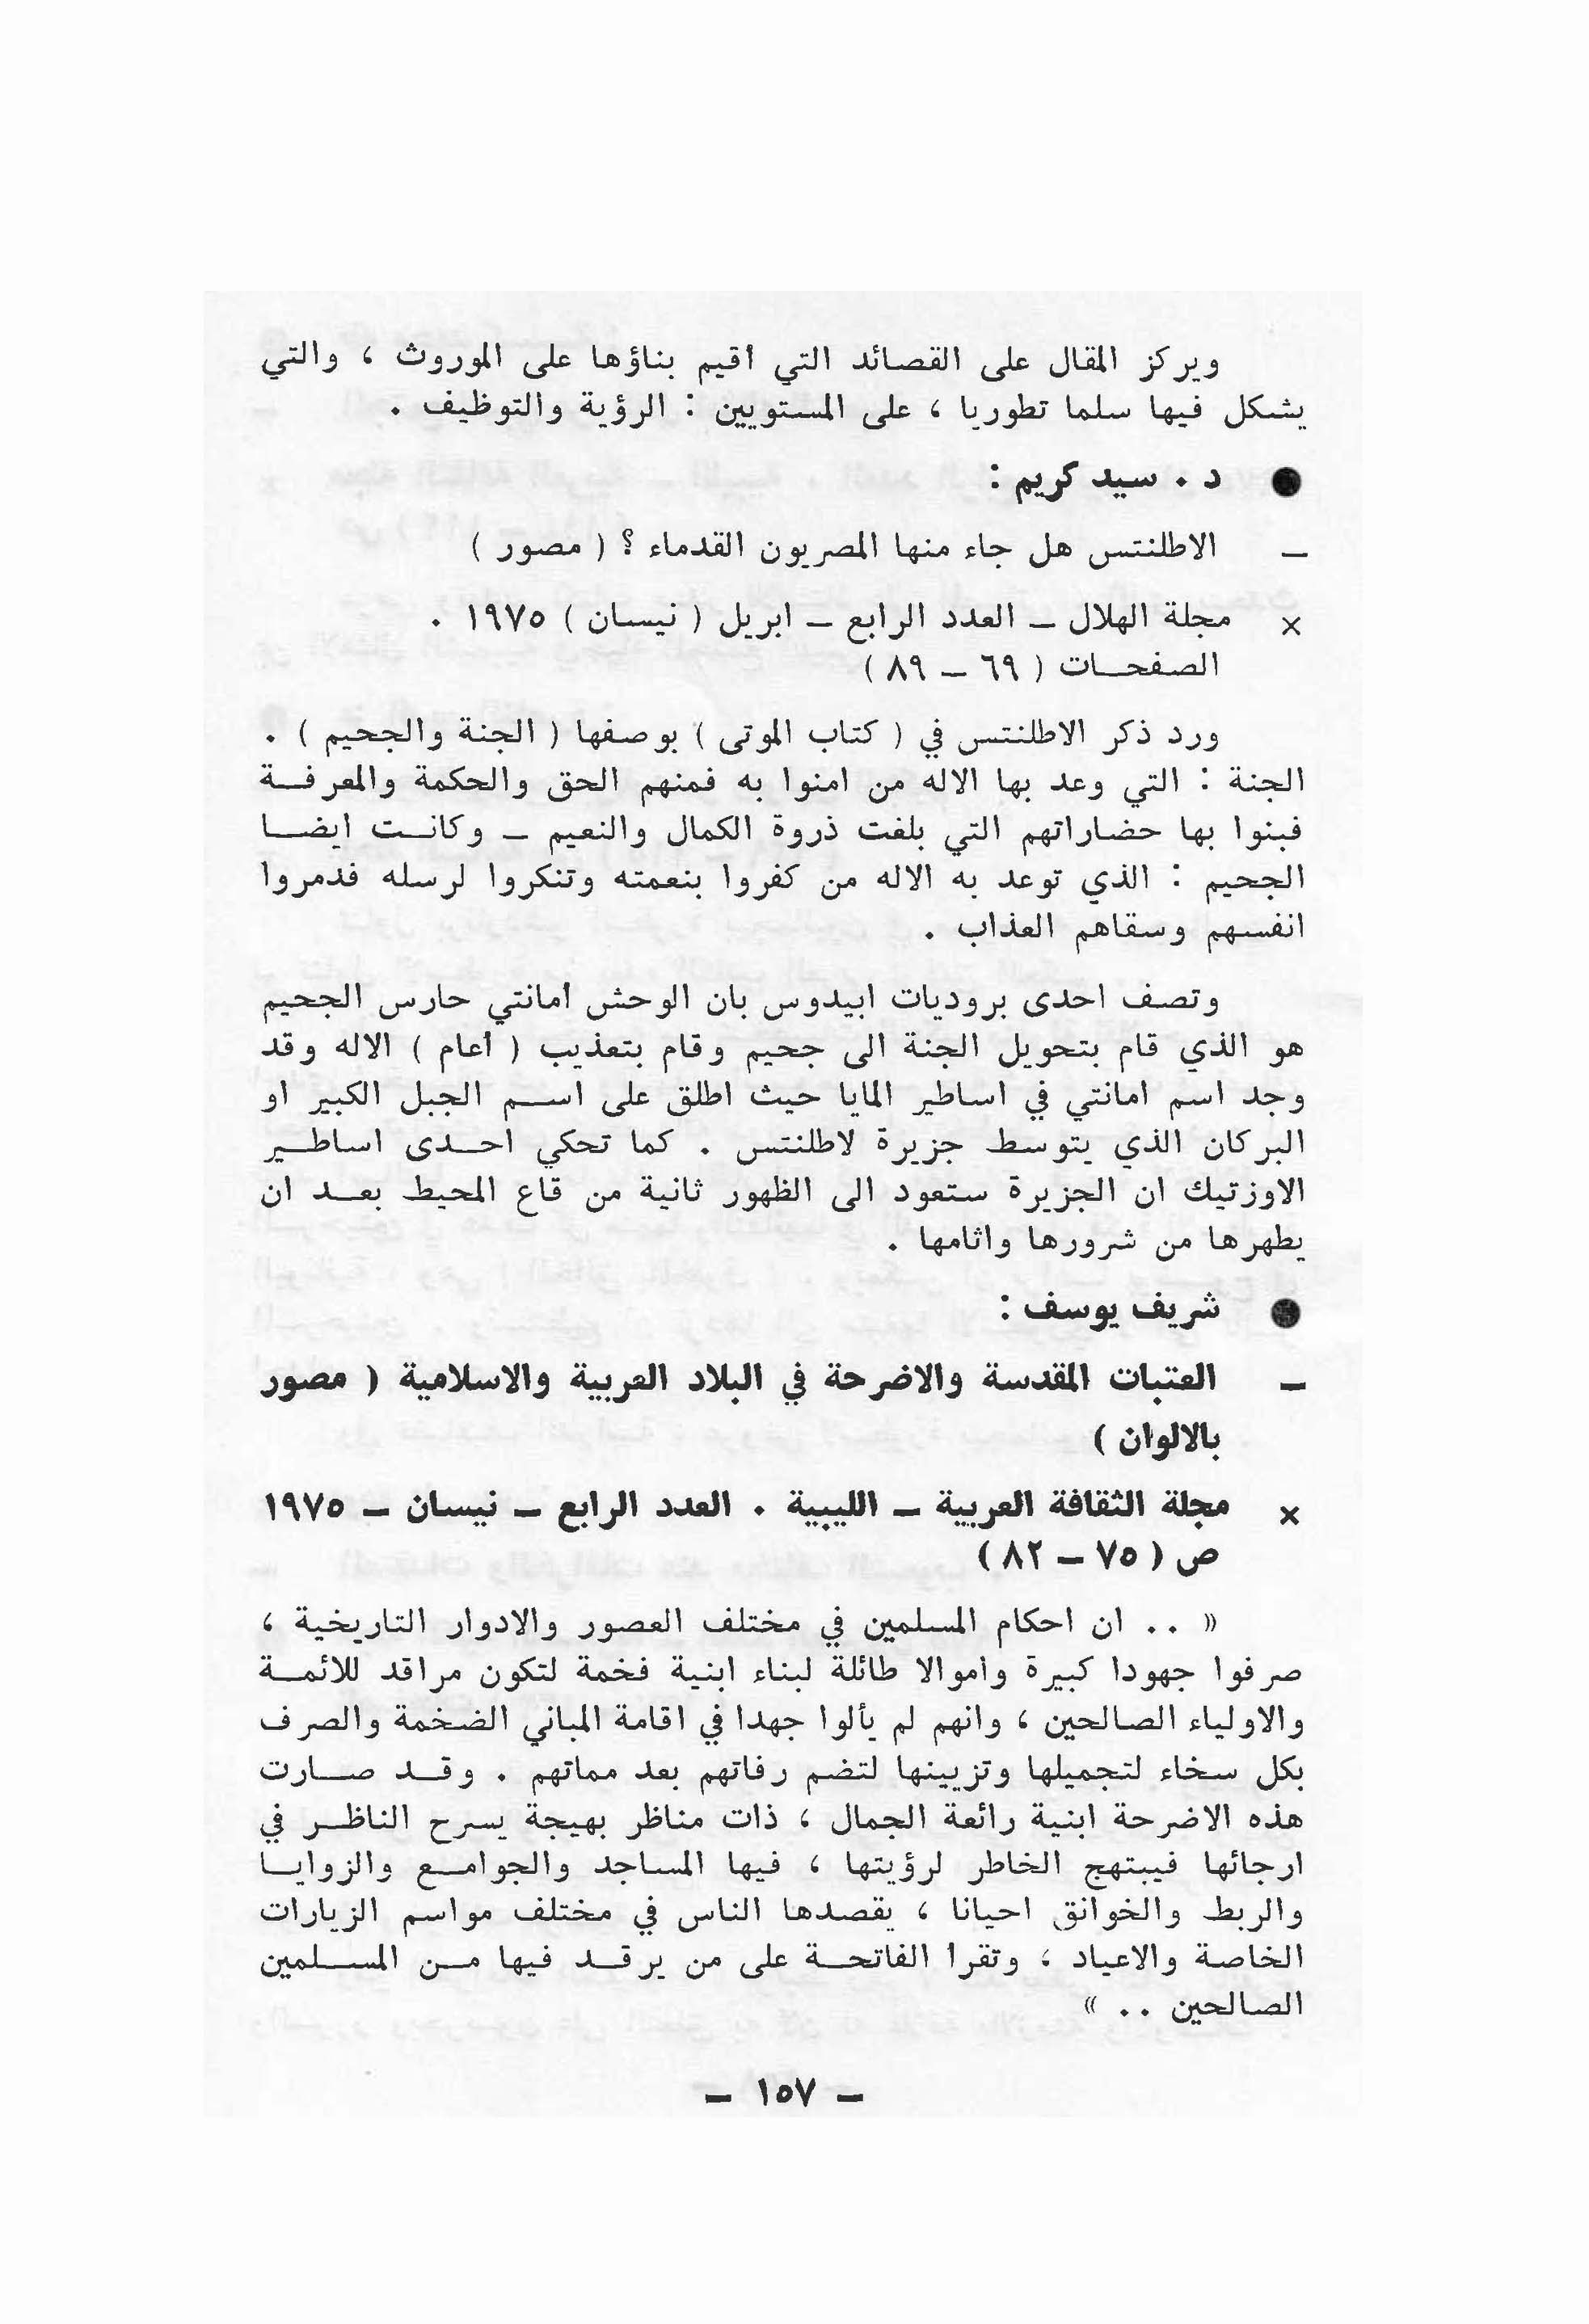 ويركز المقال على القصائد التي أقيم بناؤها على الموروث ، والتي
يشكل فيها سلما تطوريا ، على المستويين : الرؤية والتوظيف .
● د . سيد كريم :
– الاطلنتس هل جاء منها المصريون القدماء ؟ ( مصور )
× مجلة الهلال – العدد الرابع – ابريل ( نيسان ) ١٩٧٥ .
الصفحـات ( ٦٩ – ٨٩ )
ورد ذكر الاطلنتس في ( كتاب الموتى ) بوصفها ( الجنة والجحيم ) .
الجنة : التي وعد بها الاله من امنوا به فمنهم الحق والحكمة والمعرفـة
فبنوا بها حضاراتهم التي بلغت ذروة الكمال والنعيم – وكانـت ايضـا
الجحيم : الذي توعد به الاله من كفروا بنعمته وتنكروا لرسله فدمروا
انفسهم وسقاهم العذاب .
وتصف احدى بروديات ابيدوس بان الوحش أمانتي حارس الجحيم
هو الذي قام بتحويل الجنة الى جحيم وقام بتعذيب ( أعام ) الاله وقد
وجد اسم امانتي في اساطير المايا حيث اطلق على اسـم الجبل الكبير او
البركان الذي يتوسط جزيرة لاطلنتس . كما تحكي احـدى اساطـير
الاوزتيك ان الجزيرة ستعود الى الظهور ثانية من قاع المحيط بعـد ان
يطهرها من شرورها واثامها .
● شريف يوسف :
– العتبات المقدسة والاضرحة في البلاد العربية والاسلامية ( مصور
بالالوان )
× مجلة الثقافة العربية – الليبية . العدد الرابع – نيسان – ١٩٧٥
ص ( ٧٥ – ٨٢ )
« .. ان احكام المسلمين في مختلف العصور والادوار التاريخية ،
صرفوا جهودا كبيرة واموالا طائلة لبناء ابنية فخمة لتكون مراقد للائمـة
والاولياء الصالحين ، وانهم لم يألوا جهدا في اقامة المباني الضخمة والصرف
بكل سخاء لتجميلها وتزيينها لتضم رفاتهم بعد مماتهم . وقـد صـارت
هذه الاضرحة ابنية رائعة الجمال ، ذات مناظر بهيجة يسرح الناظـر في
ارجائها فيبتهج الخاطر لرؤيتها ، فيها المساجد والجوامـع والزوايـا
والربط والخوانق احيانا ، يقصدها الناس في مختلف مواسم الزيارات
الخاصة والاعياد ، وتقرا الفاتحـة على من يرقـد فيها مـن المسـلمين
الصالحين .. »
– ١٥٧ –